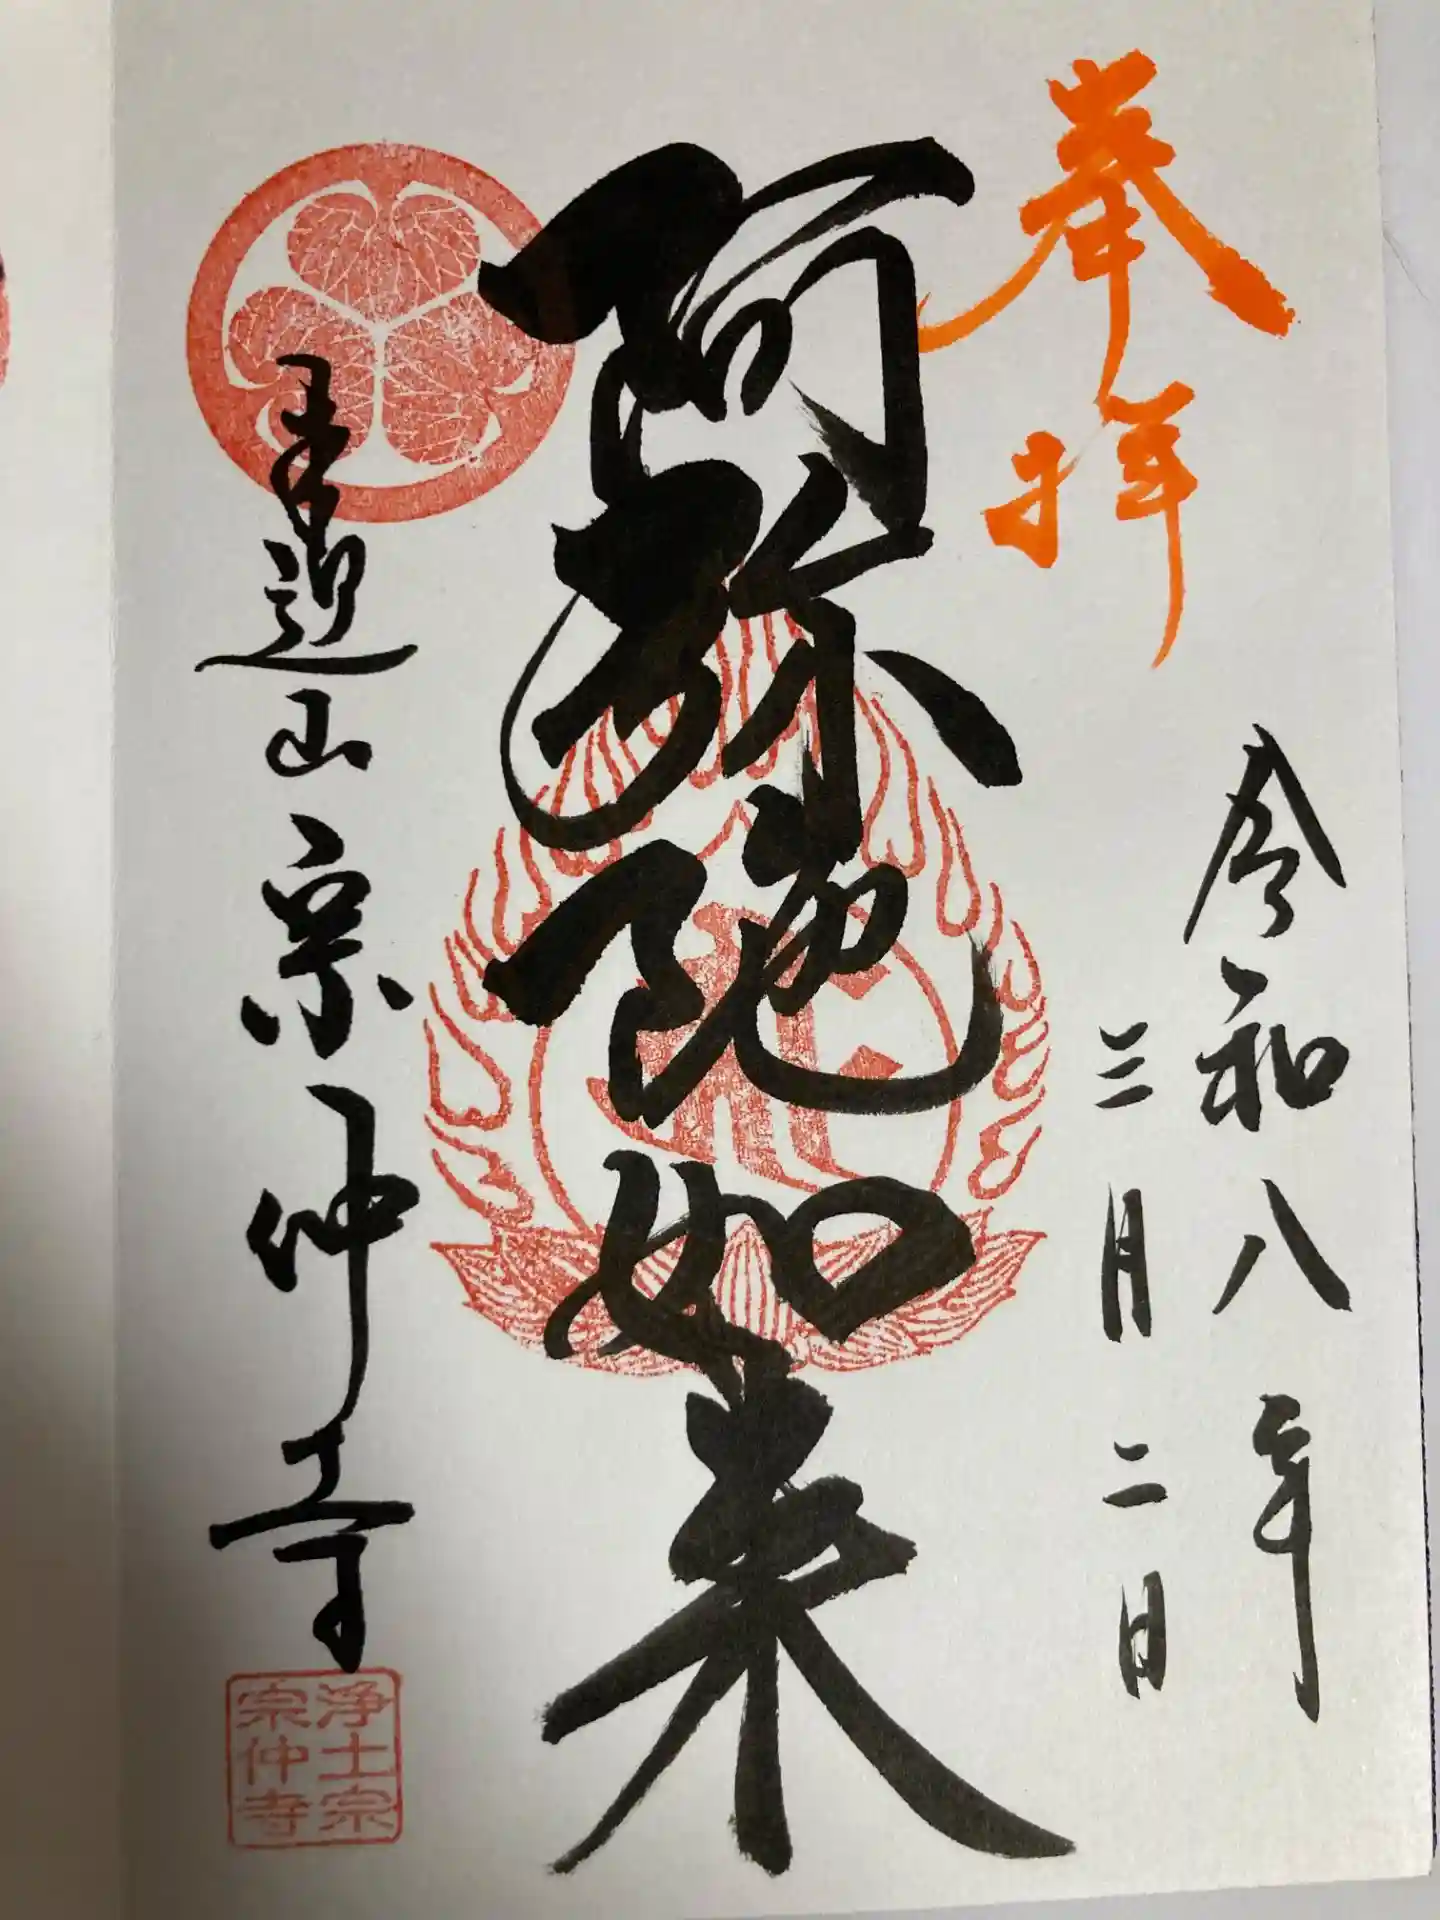 奉拝
令和八年
三月二日
阿弥陀如来
来迎山宗仲寺
浄土宗
宗仲寺